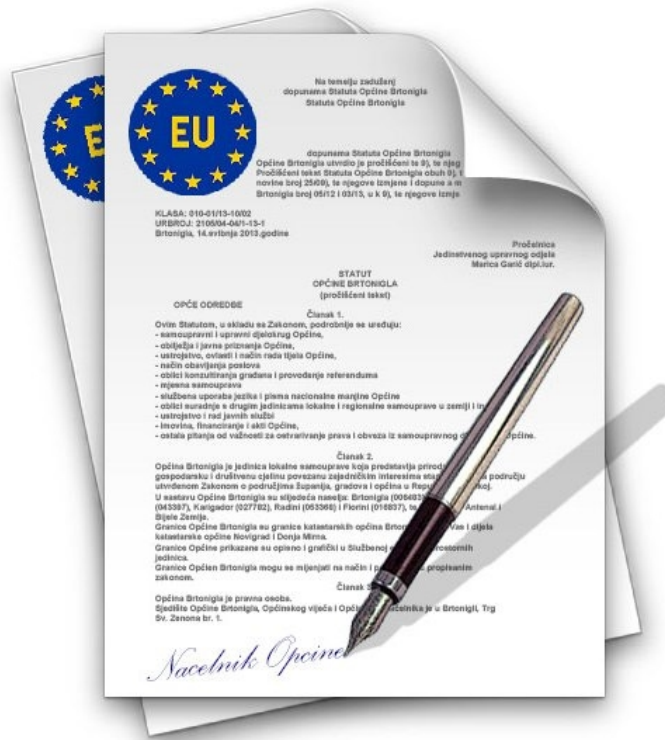 EU
Na temelju zaduženj
dopunama Statuta Općine Brtonigla
Statuta Općine Brtonigla
dopunama Statuta Općine Brtonigla
Općine Brtonigla utvrdio je pročišćeni te 9), te njeg
Pročišćeni tekst Statuta Općine Brtonigla obuh 9), t
novine broj 25/09), te njegove izmjene i dopune a m
Brtonigla broj 05/12 i 03/13, u k 9), te njegove izmje
KLASA: 010-01/13-10/02
URBROJ: 2105/04-04/1-13-1
Brtonigla, 14.svibnja 2013.godine
Pročelnica
Jedinstvenog upravnog odjela
Marica Garić dipl.iur.
STATUT
OPĆINE BRTONIGLA
(pročišćeni tekst)
OPĆE ODREDBE
Članak 1.
Ovim Statutom, u skladu sa Zakonom, podrobnije se uređuju:
- samoupravni i upravni djelokrug Općine,
- obilježja i javna priznanja Općine,
- ustrojstvo, ovlasti i način rada tijela Općine,
- način obavljanja poslova
- oblici konzultiranja građana i provođenje referenduma
- mjesna samouprava
- službena uporaba jezika i pisma nacionalne manjine Općine
- oblici suradnje s drugim jedinicama lokalne i regionalne samouprave u zemlji i in
- ustrojstvo i rad javnih službi
- imovina, financiranje i akti Općine,
- ostala pitanja od važnosti za ostvarivanje prava i obveza iz samoupravnog d Općine.
Članak 2.
Općina Brtonigla je jedinica lokalne samouprave koja predstavlja prirod
gospodarsku i društvenu cjelinu povezanu zajedničkim interesima sta području
utvrđenom Zakonom o područjima županija, gradova i općina u Repu koj.
U sastavu Općine Brtonigla su slijedeća naselja: Brtonigla
(043397), Karigador (027782), Radini (053366) i Fiorini (016837), te Antenal i
Bijele Zemlje.
Granice Općine Brtonigla su granice katastarskih općina Brto Vas i dijela
katastarske općine Novigrad i Donja Mirna.
Granice Općine prikazane su opisno i grafički u Službenoj rostornih
jedinica.
Granice Općien Brtonigla mogu se mijenjati na način i p propisanim
zakonom.
Članak 3
Općina Brtonigla je pravna osoba.
Sjedište Općine Brtonigla, Općinskog vijeća i Opći čelnika je u Brtonigli, Trg
Sv. Zenona br. 1.
Nacelnik Opcine